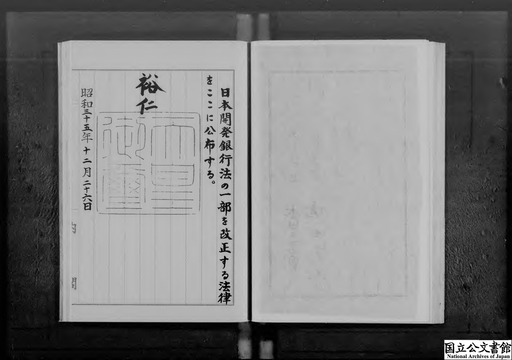 日本開発銀行法の一部を改正する法律
をここに公布する。
裕仁
天皇御璽
昭和三十五年十二月二十六日
国立公文書館
National Archives of Japan